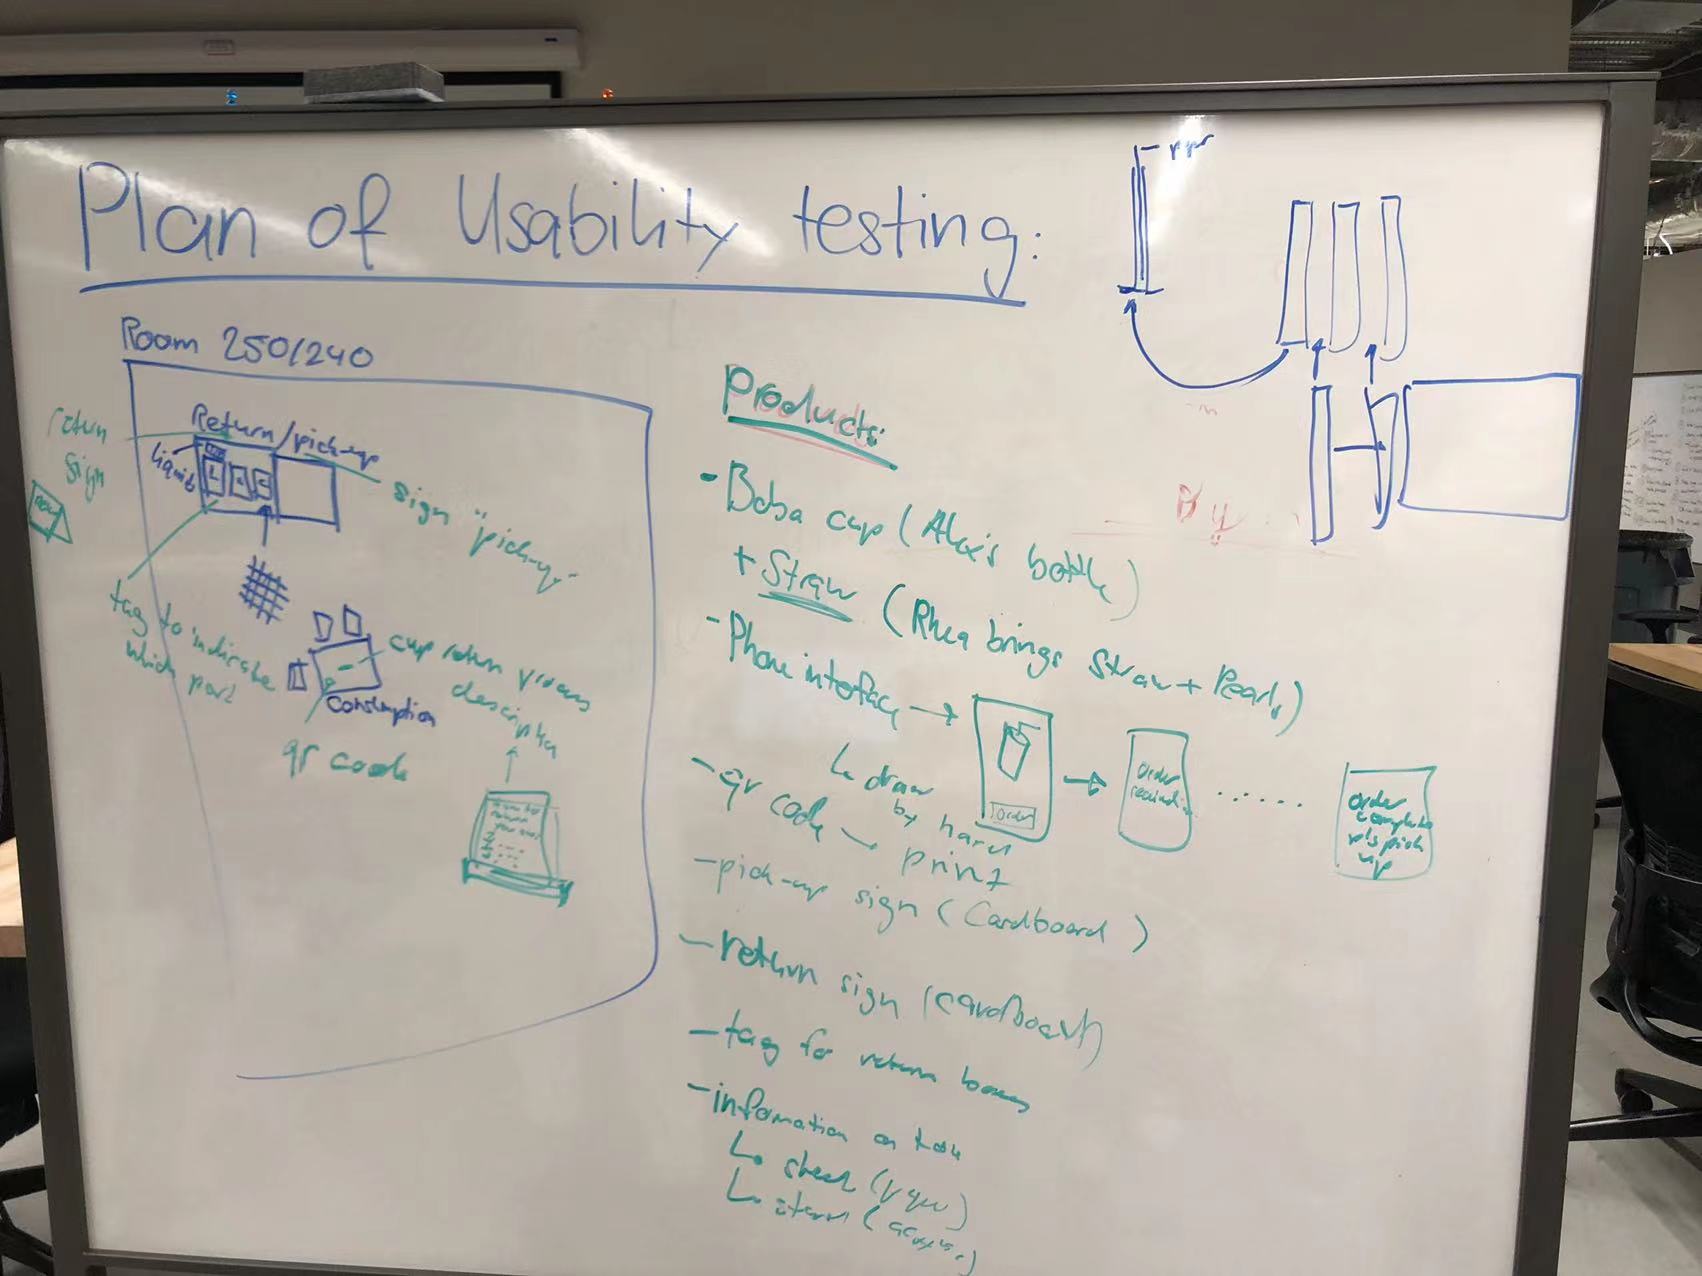 Plan of Usability testing:
Room 250/240
return
sign
Return/pick-up
liquid
L
sign "pick-up"
tag to indicate
which part
cup return
Consumption
qr code
Products:
- Boba cup (Alex's bottle)
+ Straw (Rhea brings Straw + Pearls)
- Phone interface →
↳ draw
by hand
order
→
order
......
order
complete
pls pick
up
- qr code → print
- pick-up sign (Cardboard)
- return sign (cardboard)
- tag for return boxes
- information on
↳
↳